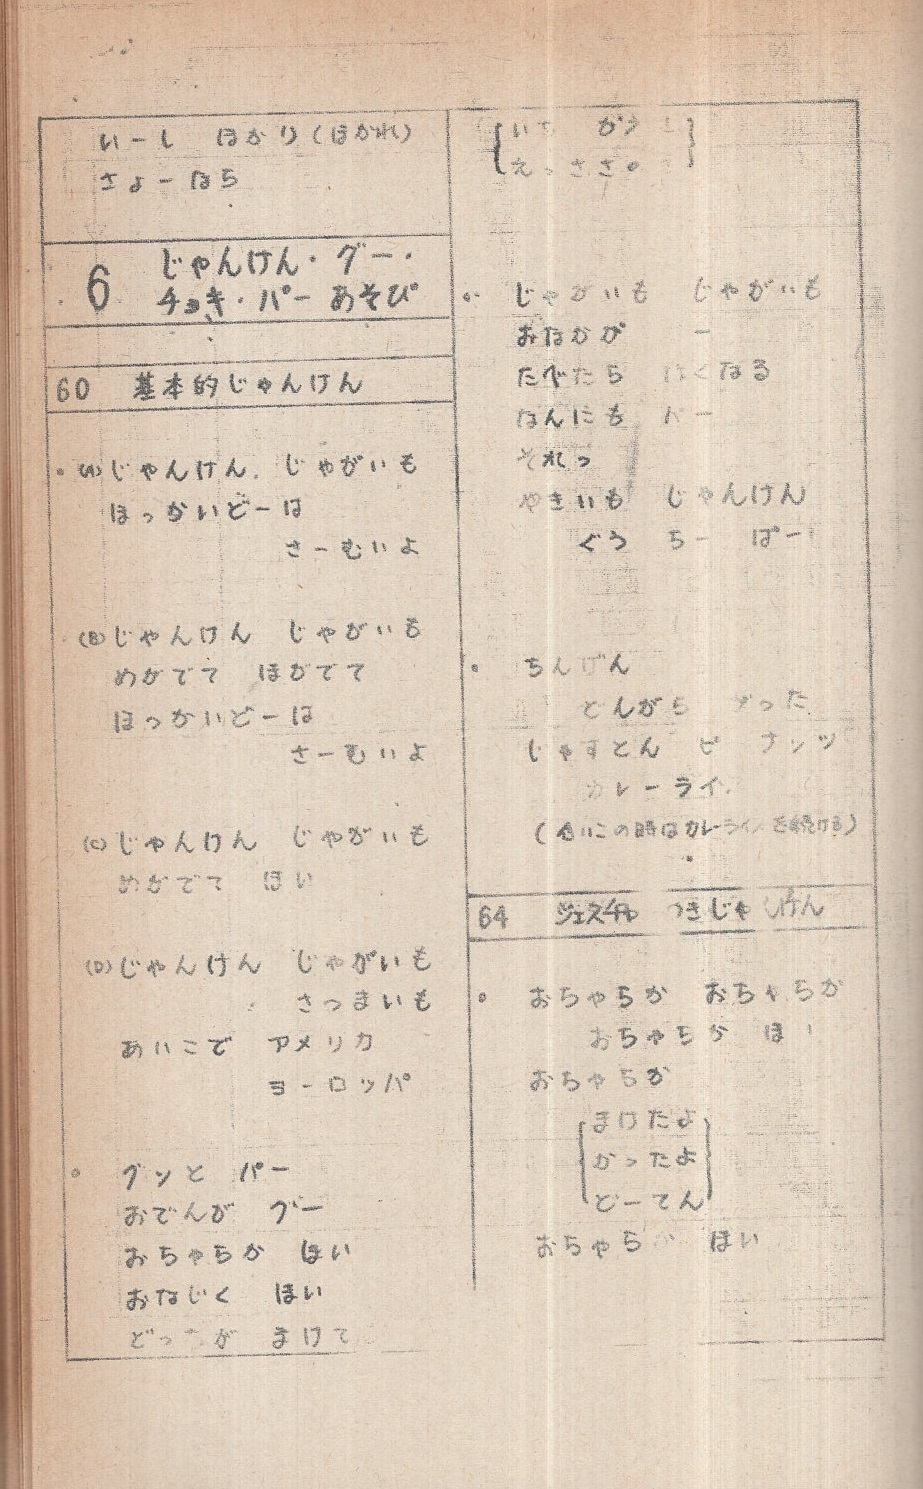 いーし ほかり(ほかれ)
さよーなら
6 じゃんけん・グー・
チョキ・パー あそび
60 基本的じゃんけん
。(A)じゃんけん、じゃがいも
ほっかいどーは
さーむいよ
(B)じゃんけん じゃがいも
めがでて ほがでて
ほっかいどーは
さーむいよ
(C)じゃんけん じゃがいも
めがでて ほい
(D)じゃんけん じゃがいも
さつまいも
あいこで アメリカ
ヨーロッパ
。 グッと パー
おでんが グー
おちゃらか ほい
おなじく ほい
が まけて
えっささの
。 じゃがいも じゃがいも
おなかが ー
たべたら なる
なんにも
それっ
やきいも じゃんけん
ぐう ちー ぱー
。 ちんげん
どんがら
じゃすとん ピ ナッツ
カレーライ
(あいこの時はカレーライ を続ける)
64 ジェスチャー つきじゃ けん
。 おちゃらか おちゃらか
おちゃらか ほい
おちゃらか
まけたよ
かったよ
どーてん
おちゃら ほい